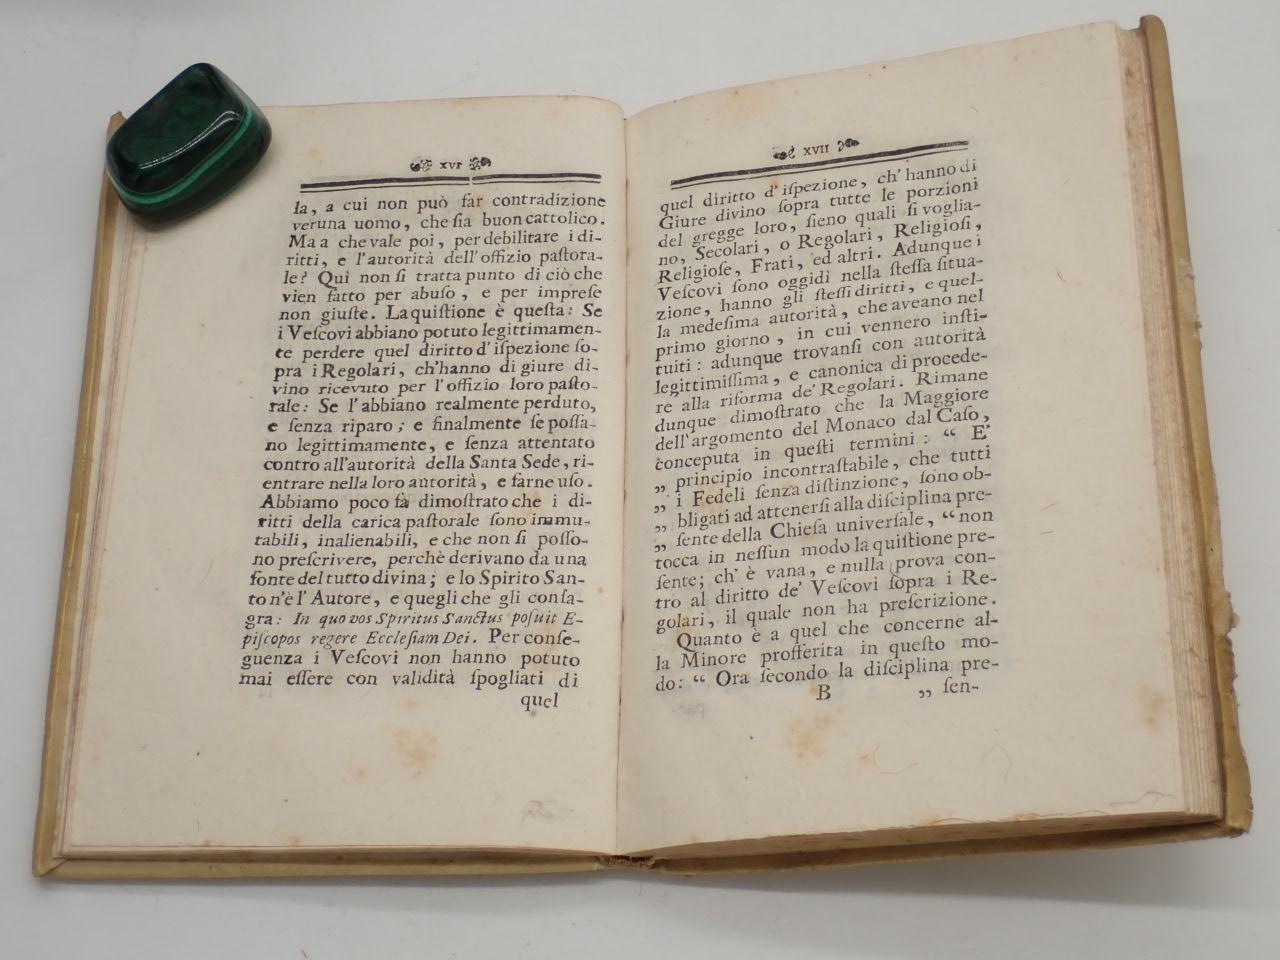 XVI
la, a cui non può far contradizione
veruna uomo, che ſia buon cattolico.
Ma a che vale poi, per debilitare i di-
ritti, e l'autorità dell'offizio paſtora-
le? Quì non ſi tratta punto di ciò che
vien fatto per abuſo, e per impreſe
non giuſte. La quiſtione è queſta: Se
i Veſcovi abbiano potuto legittimamen-
te perdere quel diritto d'iſpezione ſo-
pra i Regolari, ch'hanno di giure di-
vino ricevuto per l'offizio loro paſto-
rale: Se l'abbiano realmente perduto,
e ſenza riparo; e finalmente ſe poſſa-
no legittimamente, e ſenza attentato
contro all'autorità della Santa Sede, ri-
entrare nella loro autorità, e farne uſo.
Abbiamo poco fà dimoſtrato che i di-
ritti della carica paſtorale ſono immu-
tabili, inalienabili, e che non ſi poſſo-
no preſcrivere, perchè derivano da una
fonte del tutto divina; e lo Spirito San-
to n'è l'Autore, e quegli che gli conſa-
gra: In quo vos Spiritus Sanctus poſuit E-
piſcopos regere Eccleſiam Dei. Per conſe-
guenza i Veſcovi non hanno potuto
mai eſſere con validità ſpogliati di
quel
XVII
quel diritto d'iſpezione, ch'hanno di
Giure divino ſopra tutte le porzioni
del gregge loro, ſieno quali ſi voglia-
no, Secolari, o Regolari, Religioſi,
Religioſe, Frati, ed altri. Adunque i
Veſcovi ſono oggidì nella ſteſſa ſitua-
zione, hanno gli ſteſſi diritti, e quel-
la medeſima autorità, che aveano nel
primo giorno, in cui vennero inſti-
tuiti: adunque trovanſi con autorità
legittimiſſima, e canonica di procede-
re alla riforma de' Regolari. Rimane
dunque dimoſtrato che la Maggiore
dell'argomento del Monaco dal Caſo,
conceputa in queſti termini: “ E'
„ principio incontraſtabile, che tutti
„ i Fedeli ſenza diſtinzione, ſono ob-
„ bligati ad attenerſi alla diſciplina pre-
„ ſente della Chieſa univerſale, “ non
tocca in neſſun modo la quiſtione pre-
ſente; ch' è vana, e nulla prova con-
tro al diritto de' Veſcovi ſopra i Re-
golari, il quale non ha preſcrizione.
Quanto è a quel che concerne al-
la Minore profferita in queſto mo-
do: “ Ora ſecondo la diſciplina pre-
B „ ſen-